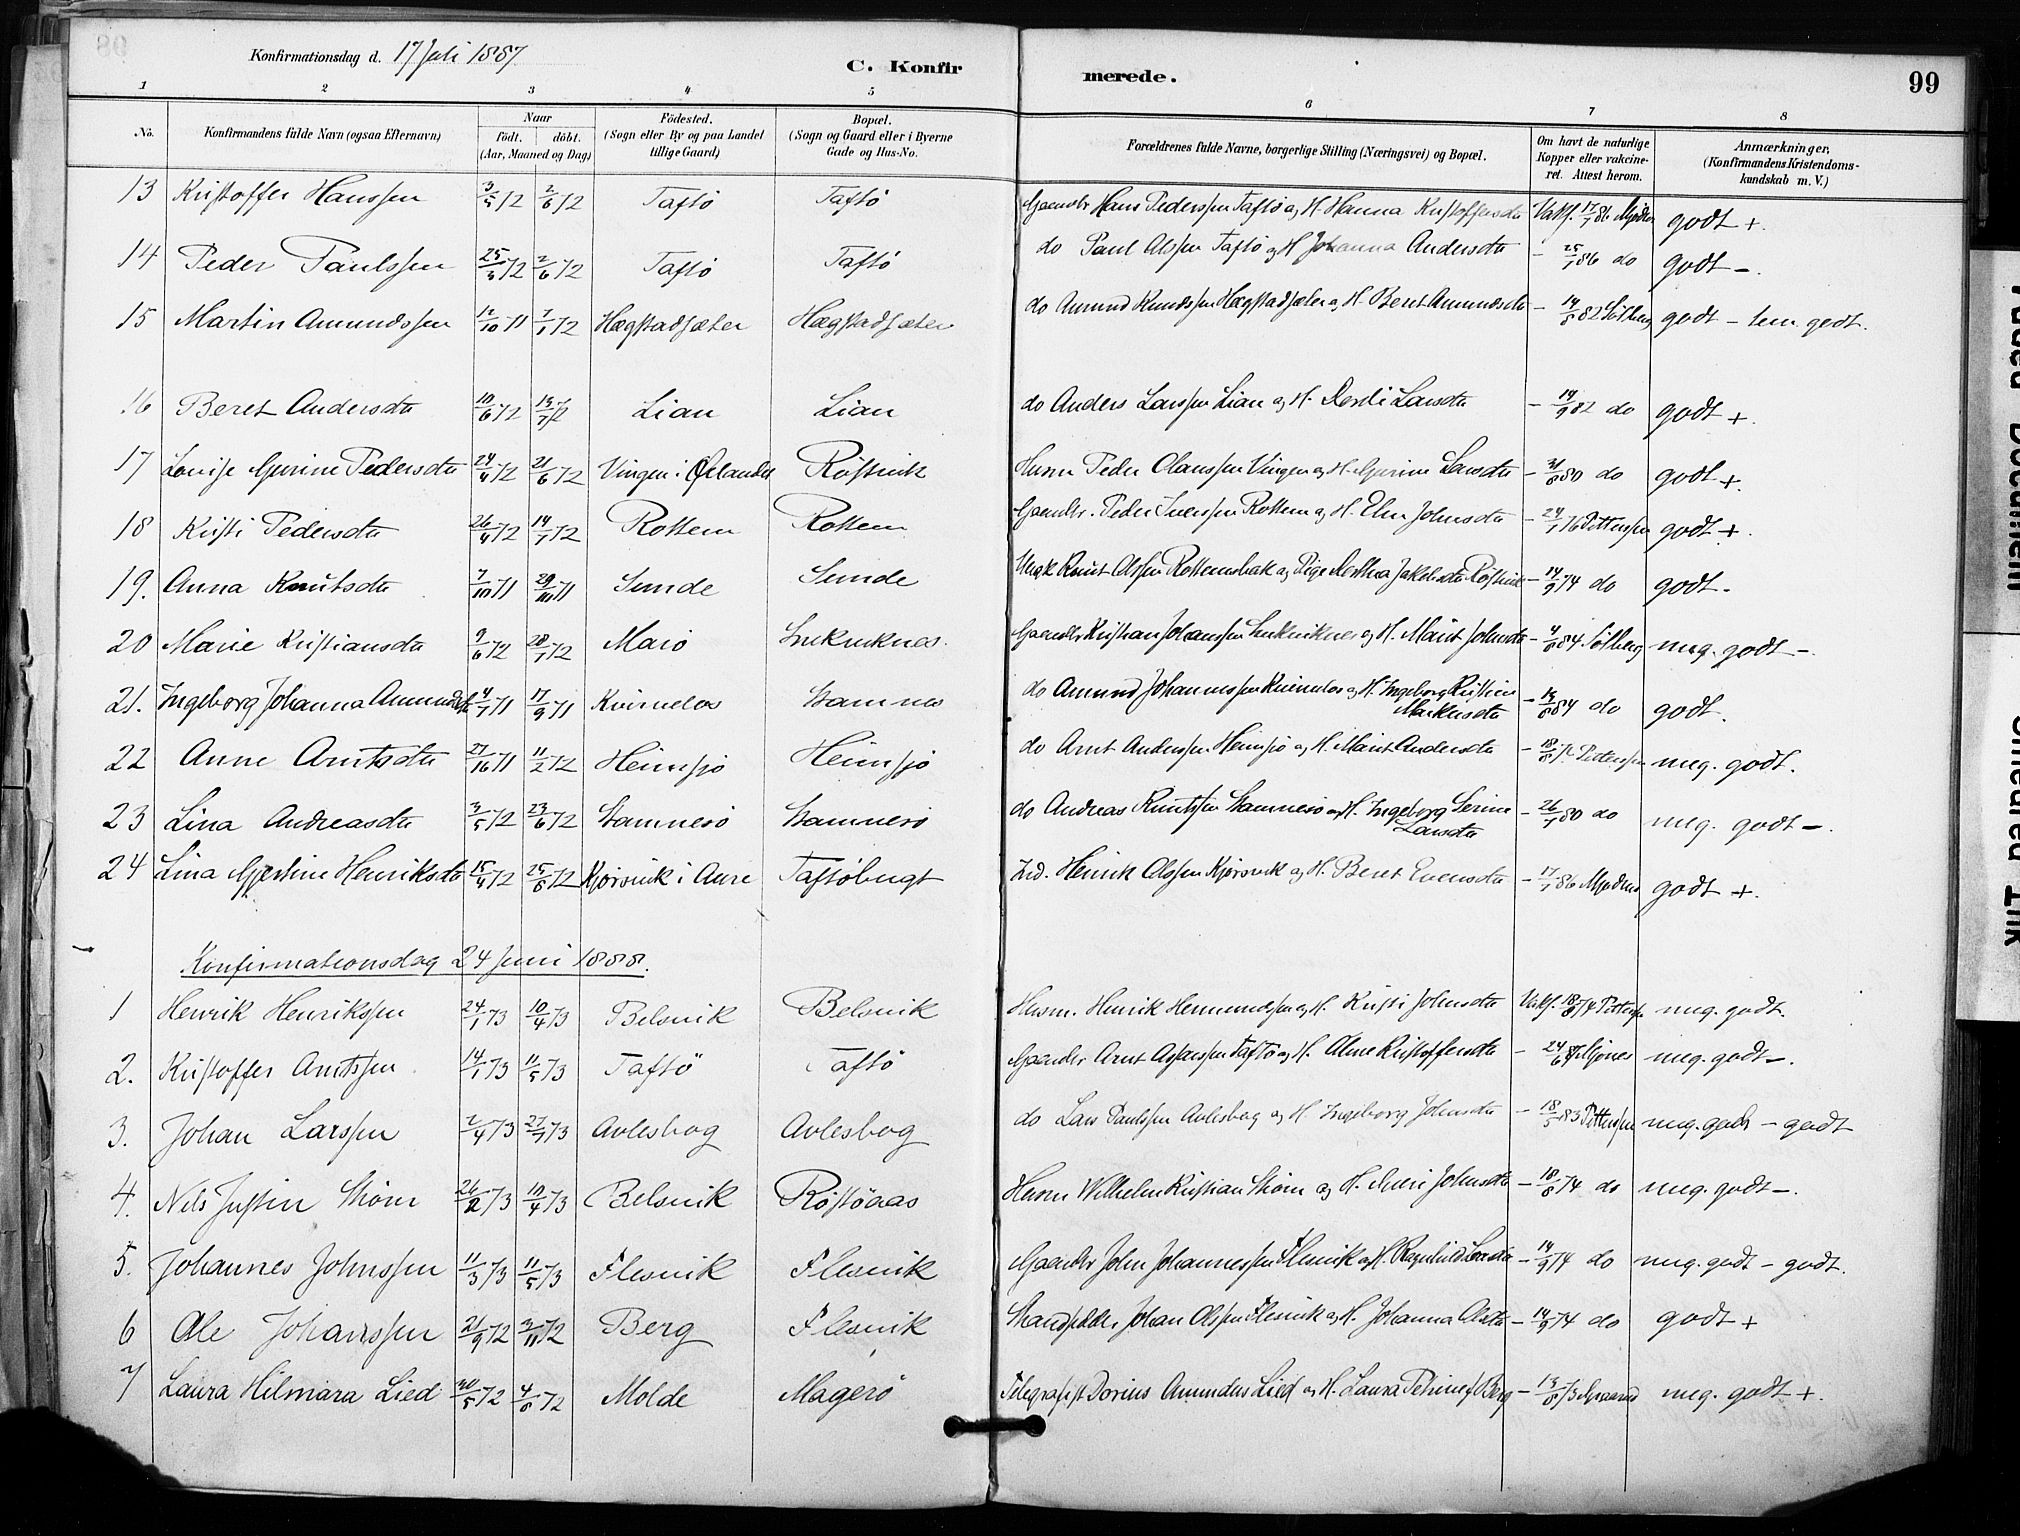 Konfirmationsdag d. 17 Juli 1887
C. Konfir merede. 99
1 2 3 4 5 6 7 8
No. Konfirmandens fulde Navn (ogsaa Efternavn) Naar födt. döbt. (Aar, Maaned og Dag) Födested. (Sogn eller By og paa Landet tillige Gaard) Bopæl. (Sogn og Gaard eller i Byerne Gade og Hus-No. Forældrenes fulde Navne, borgerlige Stilling (Næringsvei) og Bopæl. Om havt de naturlige Kopper eller vakcineret. Attest herom. Anmærkninger, (Konfirmandens Kristendomskundskab m. V.)
13 Kristoffer Hanssen 3/5 72 2/6 72 Taftö Taftö Gaardbr Hans Pederssen Taftö og H. Hanna Kristoffersdtr Vakf. 17/1 86 godt +.
14 Peder Paulssen 25/3 72 2/6 72 Taftö Taftö do Paul Olssen Taftö og H Johanna Andersdtr - 25/1 86 do godt -.
15 Martin Amundssen 12/10 71 7/1 72 Hægstadsæter Hægstadsæter do Amund Knudssen Hægstadsæter og H. Beret Amundsdtr - 14/8 82 Solberg godt - tem. godt.
16 Beret Andersdtr 10/6 72 14/7 72 Lian Lian do Anders Larssen Lian og H. Larsdtr - 14/9 82 do godt +
17 Lovise Gurine Pedersdtr 24/4 72 21/6 72 Vingen i Ørlandet Röstvik Husm Peder Olaussen Vingen og H. Gurine Larsdtr - 31/8 80 do godt +.
18 Kristi Pedersdtr 26/4 72 14/7 72 Rottem Rottem Gaardbr. Peder Iverssen Rottem og H. Elen Johnsdtr - 24/1 76 Petterssen godt +.
19. Anna Knutsdtr 7/10 71 29/10 71 Sunde Sunde Ungk Knut Olssen Rottemsbak og Pige Jakobsdtr Röstvik - 14/9 74 do godt.
20 Marie Kristiansdtr 9/6 72 28/7 72 Marö Gaardbr Kristian Johanssen og H. Marit Johnsdtr - 4/8 84. Solberg meg. godt -
21. Ingeborg Johanna Amundsdtr 4/7 71 17/9 71 Kvernelos Stamnes do Amund Johannssen Kvernelos og H. Ingeborg Kristine
Markusdtr - 14/8 84 do godt.
22 Anne Arntsdtr 27/10 71 11/2 72 Heimsjö Heimsjö do Arnt Anderssen Heimsjö og H. Marit Andersdtr - 18/8 Petterssen meg. godt.
23 Lina Andreasdtr 3/5 72 23/6 72 Stamnesö Stamnesö do Andreas Knutssen Stamnesö og H. Ingeborg Serine
Larsdtr - 26/1 80 do meg. godt -.
24 Lina Gjertine Henriksdtr 15/4 72 25/8 72 Kjörsvik i Aure Taftöbugt Ind. Henrik Olssen Kjörsvik og H. Beret Evensdtr - 17/1 86 godt +.
Konfirmationsdag 24 Juni 1888.
1 Henrik Henrikssen 24/1 73 10/4 73 Belsvik Belsvik Husm. Henrik Hemmundssen og H. Kristi Johnsdtr Vakf. 18/8 74 Petterssen meg. godt.
2. Kristoffer Arntssen 14/1 73 11/5 73 Taftö Taftö Gaardbr Arnt Aspassen Taftö og H. Oline Kristoffersdtr - 24/6 87 Mjönes meg. godt -.
3. Johan Larssen 2/4 73 27/7 73 Avleshog Avleshog do Lars Paulssen Avleshog og H. Ingeborg Johnsdtr - 18/5 83 Petterssen meg. godt - godt
4. Nils Justin Strøm 26/2 73 10/4 73 Belsvik Röstöaas Husm Wilhelm Kristian Strøm og H. Johnsdtr - 18/8 74 do meg. godt -.
5. Johannes Johnssen 11/3 73 11/5 73 Flesvik Flesvik Gaardbr John Johannessen Flesvik og H. Ragnhild Larsdtr - 14/9 74 do meg. godt - godt.
6 Ole Johanssen 21/9 72 3/11 72 Berg Flesvik Strandsidder Johan Olssen Flesvik og H. Johanna Olsdtr - 14/9 74 do godt +
7 Laura Hilmara Lied 30/5 72 4/8 72 Molde Magerö Telegrafist Dorius Amundus Lied og H. Laura Petrine f Berg - 13/8 73 meg. godt +.